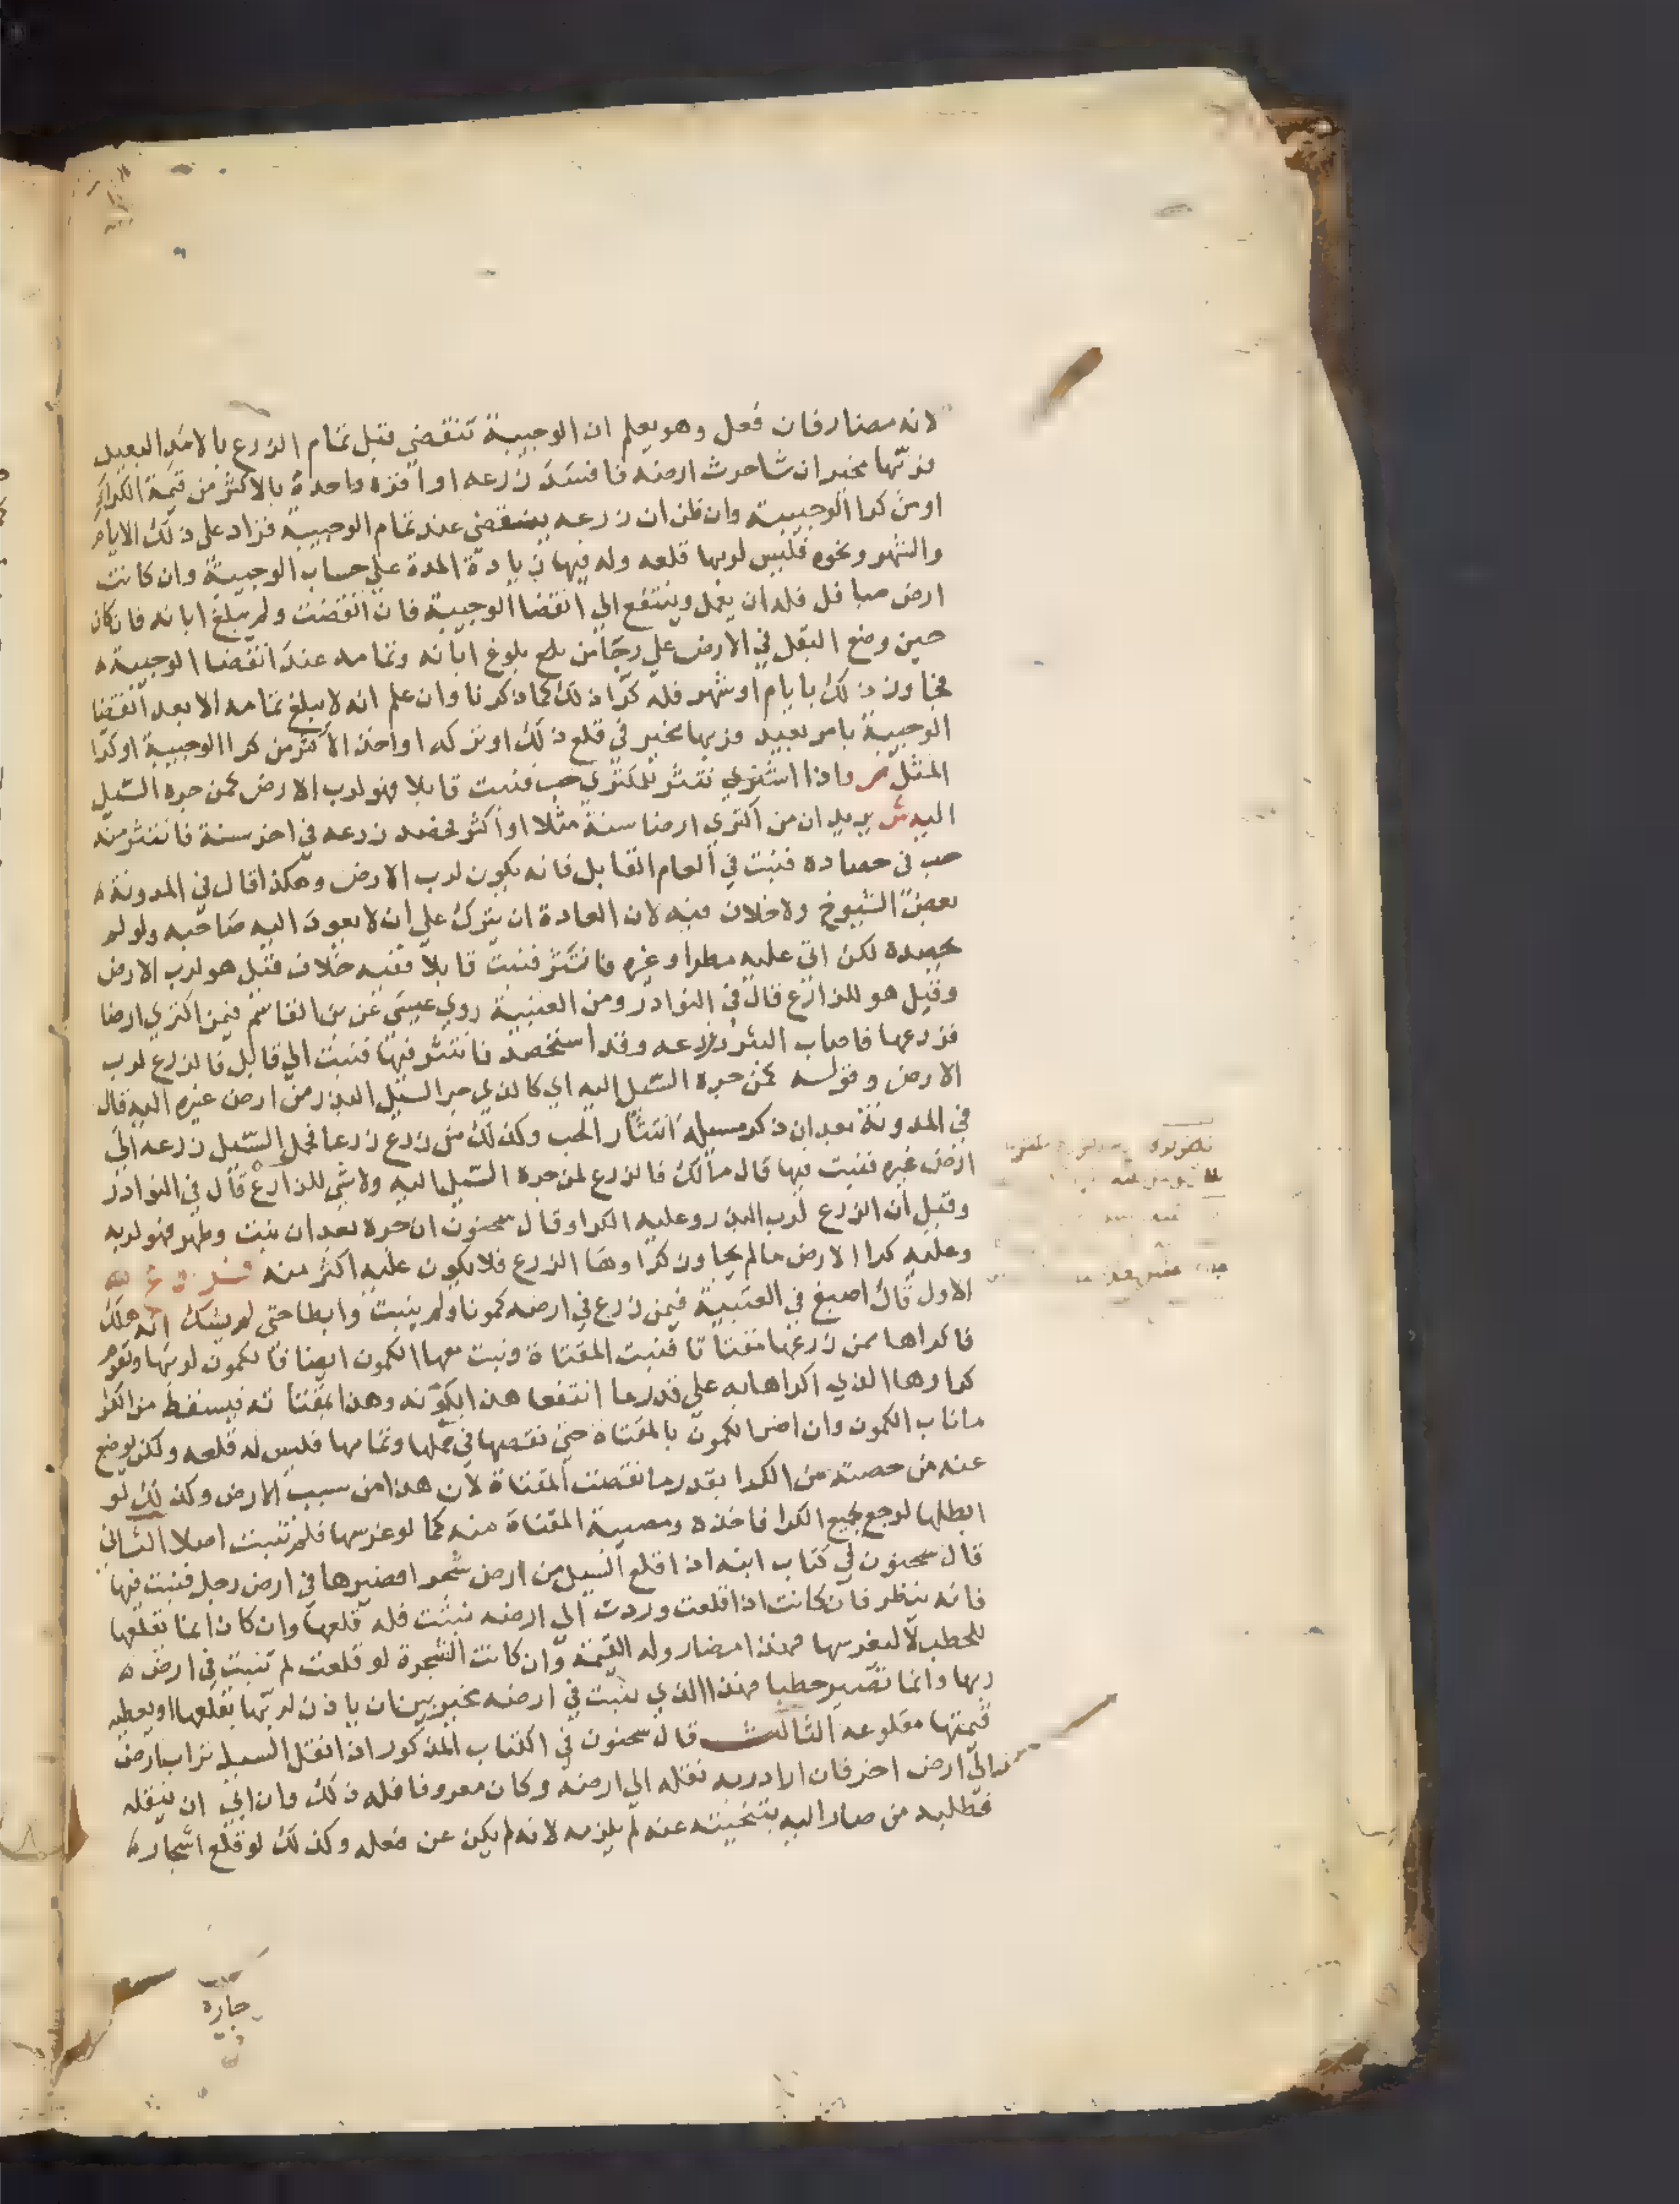 لانه مضار فان فعل وهو يعلم ان الوجيبة تنقضي قبل تمام الزرع بالامد البعيد
فربها مخير ان شا حرث ارضه فافسد زرعه او اقره واحدة بالاكثر من قيمة الكرا
او من كرا الوجيبة وان ظن ان زرعه ينقضي عند تمام الوجيبة فزاد على ذلك الايام
والشهر ونحوه فليس لربها قلعه وله فيها زيادة المدة على حساب الوجيبة وان كانت
ارض مباقل فله ان يعمل وينتفع الي انقضا الوجيبة فان انقضت ولم يبلغ ابانه فان كان
حين وضع البقل في الارض علي رجا من بلوغ ابانه وتمامه عند انقضا الوجيبة
فجاوز ذلك بايام او شهر فله كرا ذلك كما ذكرنا وان علم انه لا يبلغ تمامه الا بعد انقضا
الوجيبة بامر بعيد فربها مخير في قلع ذلك او تركه او اخذ الاكثر من كرا الوجيبة او كرا
المثل ص واذا انتثر للمكتري حب فنبت قابلا فهو لرب الارض كمن جره السيل
اليه ش يريد ان من اكتري ارضا سنة مثلا او اكثر فحصد زرعه في اخر سنة فانتثر منه
حب في حصاده فنبت في العام القابل فانه يكون لرب الارض وهكذا قال في المدونة
بعض الشيوخ ولا خلاف فيه لان العادة ان يترك علي ان لا يعود اليه صاحبه ولو لم
يحصده لكن اتي عليه مطر او غيره فانتثر فنبت قابلا ففيه خلاف فقيل هو لرب الارض
وقيل هو للزارع قال في النوادر ومن العتبية روي عيسي عن بن القاسم فيمن اكتري ارضا
فزرعها فاصاب البرد زرعه وقد استحصد فانتثر فيها فنبت الي قابل فالزرع لرب
الارض وقوله كمن جره السيل اليه اي كالذي جر السيل البذر من ارض غيره اليه قال
في المدونة بعد ان ذكر مسيلة انتثار الحب وكذلك من زرع زرعا فحمل السيل زرعه الي
ارض غيره فنبت فيها قال مالك فالزرع لمن جره السيل اليه ولا شي للزارع قال في النوادر
وقيل ان الزرع لرب البذر وعليه الكرا وقال سحنون ان جره بعد ان نبت وظهر فهو لربه
وعليه كرا الارض ما لم يجاوز كراوها الزرع فلا يكون عليه اكثر منه
الاول قال اصبغ في العتبية فيمن زرع في ارضه كمونا ولم ينبت وابطا حتى لم يشك انه هلك
فاكراها ممن زرعها مقتاتا فنبت المقتاة ونبت معها الكمون ايضا فالكمون لربها ويقوم
كراوها الذي اكراها به علي قدر ما انتفعا هذا بكمونه وهذا بمقتاته فيسقط من الكرا
ماناب الكمون وان اضر الكمون بالمقتاة حتى نقصها في حملها وتمامها فليس له قلعه ولكن يوضع
عنه من حصته من الكرا بقدر ما نقصت المقتاة لان هذا من سبب الارض وكذلك لو
ابطلها لرجع بجميع الكرا فاخذه ومصيبة المقتاة منه كما لو غرسها فلم تنبت اصلا الثاني
قال سحنون في كتاب ابنه اذا قلع السيل من ارض شجرا فصيرها في ارض رجل فنبت فيها
فانه ينظر فان كانت اذا قلعت وردت الي ارضه نبتت فله قلعها وان كان انما تقلعها
للحطب لا ليغرسها فهذا مضار وله القيمة وان كانت الشجرة لو قلعت لم تنبت في ارض
ربها وانما تصير حطبا فهذا الذي نبتت في ارضه مخير بين ان ياذن لربها بقلعها او يعطيه
قيمتها مقلوعه الثالث قال سحنون في الكتاب المذكور اذا نقل السيل تراب ارض
الي ارض اخر فان اراد ربه نقله الي ارضه وكان معروفا فله ذلك وان ابي ان ينقله
فطلبه من صار اليه بتنحيته عنه لم يلزمه لانه لم يكن عن فعله وكذلك لو قلع اشجاره